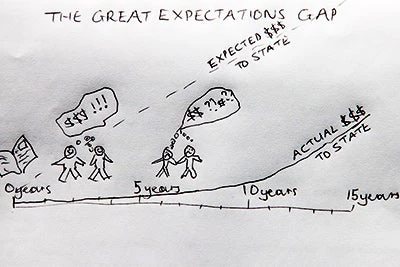 THE GREAT EXPECTATIONS GAP
EXPECTED $$$
TO STATE
$$$ !!!
$$ ?!
ACTUAL $$$
TO STATE
0years
5years
10years
15years